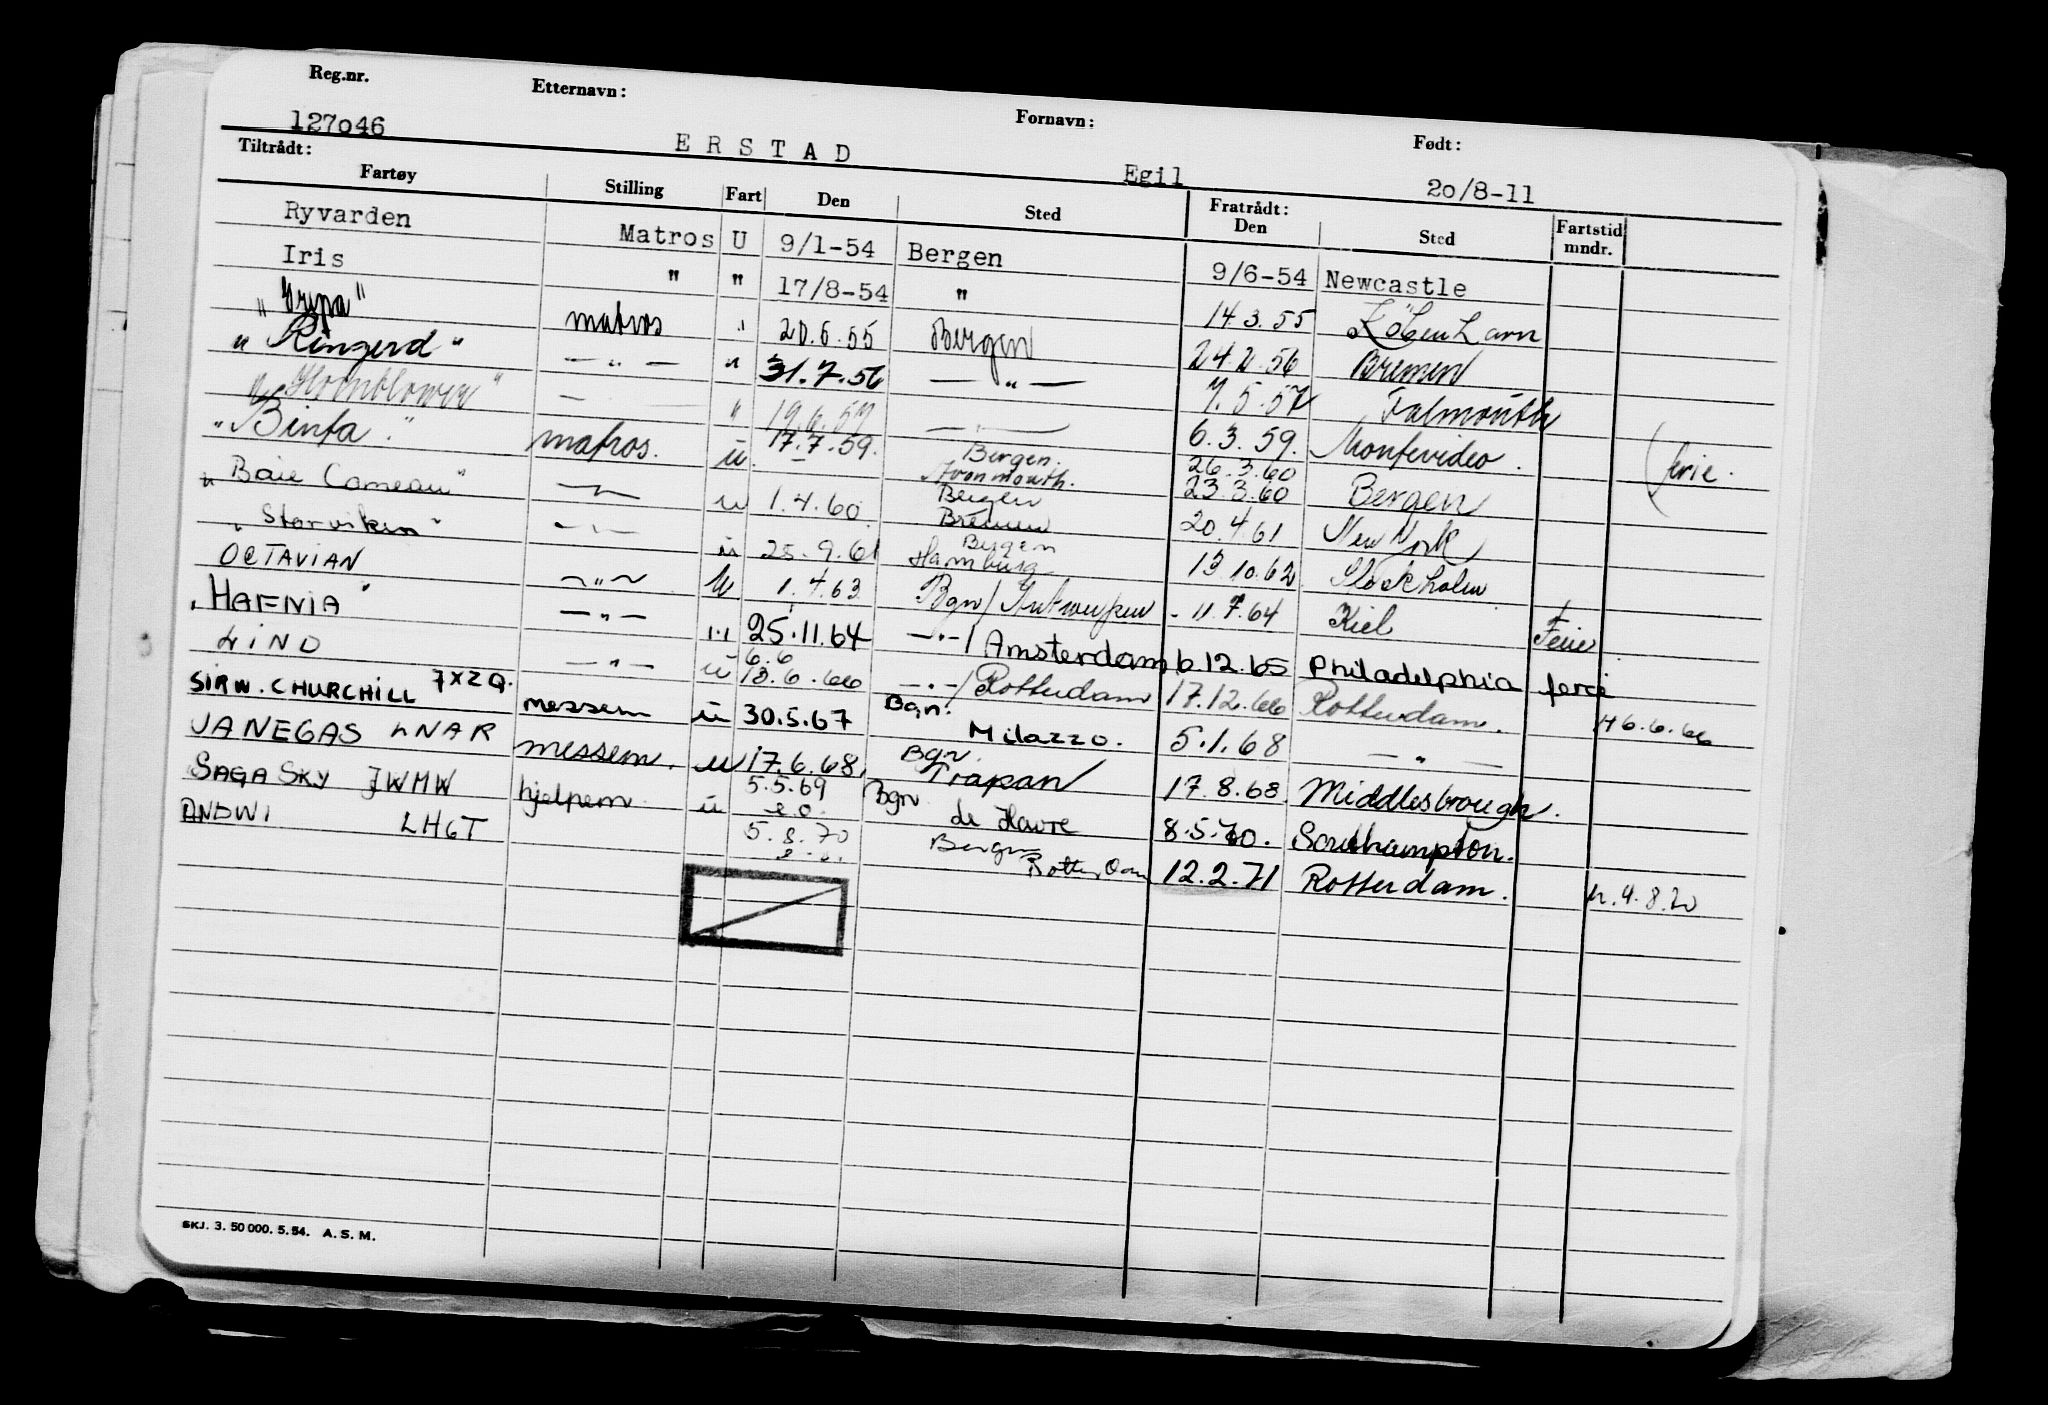 Reg.nr. Etternavn: Fornavn: Født:
127o46 E R S T A D Egil 2o/8-11
Tiltrådt: Fratrådt:
Fartøy Stilling Fart Den Sted Den Sted Fartstid mndr.
Ryvarden Matros U 9/1-54 Bergen 9/6-54 Newcastle
Iris " " 17/8-54 " 14.3.55 København
"Gripa" matros " 20.6.55 Bergen 24.2.56 Bremen
"Ringerd" — " — " 31.7.56 — " — 7.5.57 Falmouth
"Hornblower" — " 19.6.57 — " — 6.3.59. Montevideo.
"Binta." matros. u 17.7.59. Bergen. Avonmouth. 26.3.60 23.3.60 Bergen ferie.
"Baie Comeau" — " — u 1.4.60. Bergen Bremen 20.4.61 New York
"Storviken" — " — u 25.9.61 Bergen Hamburg 13.10.62 Stockholm
OCTAVIAN — " — U 1.4.63. Bgn/Antwerpen - 11.7.64 Kiel Ferie
"HAFNIA" — " — " 25.11.64 — " — / Amsterdam 6.12.65 Philadelphia ferie
LIND — " — u 6.6 13.6.66 — " — / Rotterdam 17.12.66 Rotterdam. H 6.6.66
SIR W. CHURCHILL JXZQ. messem u 30.5.67 Bgn. Milazzo. 5.1.68 — " —
VANEGAS LNAR messem. u 17.6.68. Bgn Trapan 17.8.68. Middlesbrough.
SAGA SKY JWMW hjelpem u 5.5.69 e.o. Bgn de Havre 8.5.70. Southampton.
ANDWI LHGT 5.8.70 e.o. Bergen Rotterdam 12.2.71 Rotterdam. h.4.8.70
SKJ. 3. 50 000. 5.54. A. S. M.